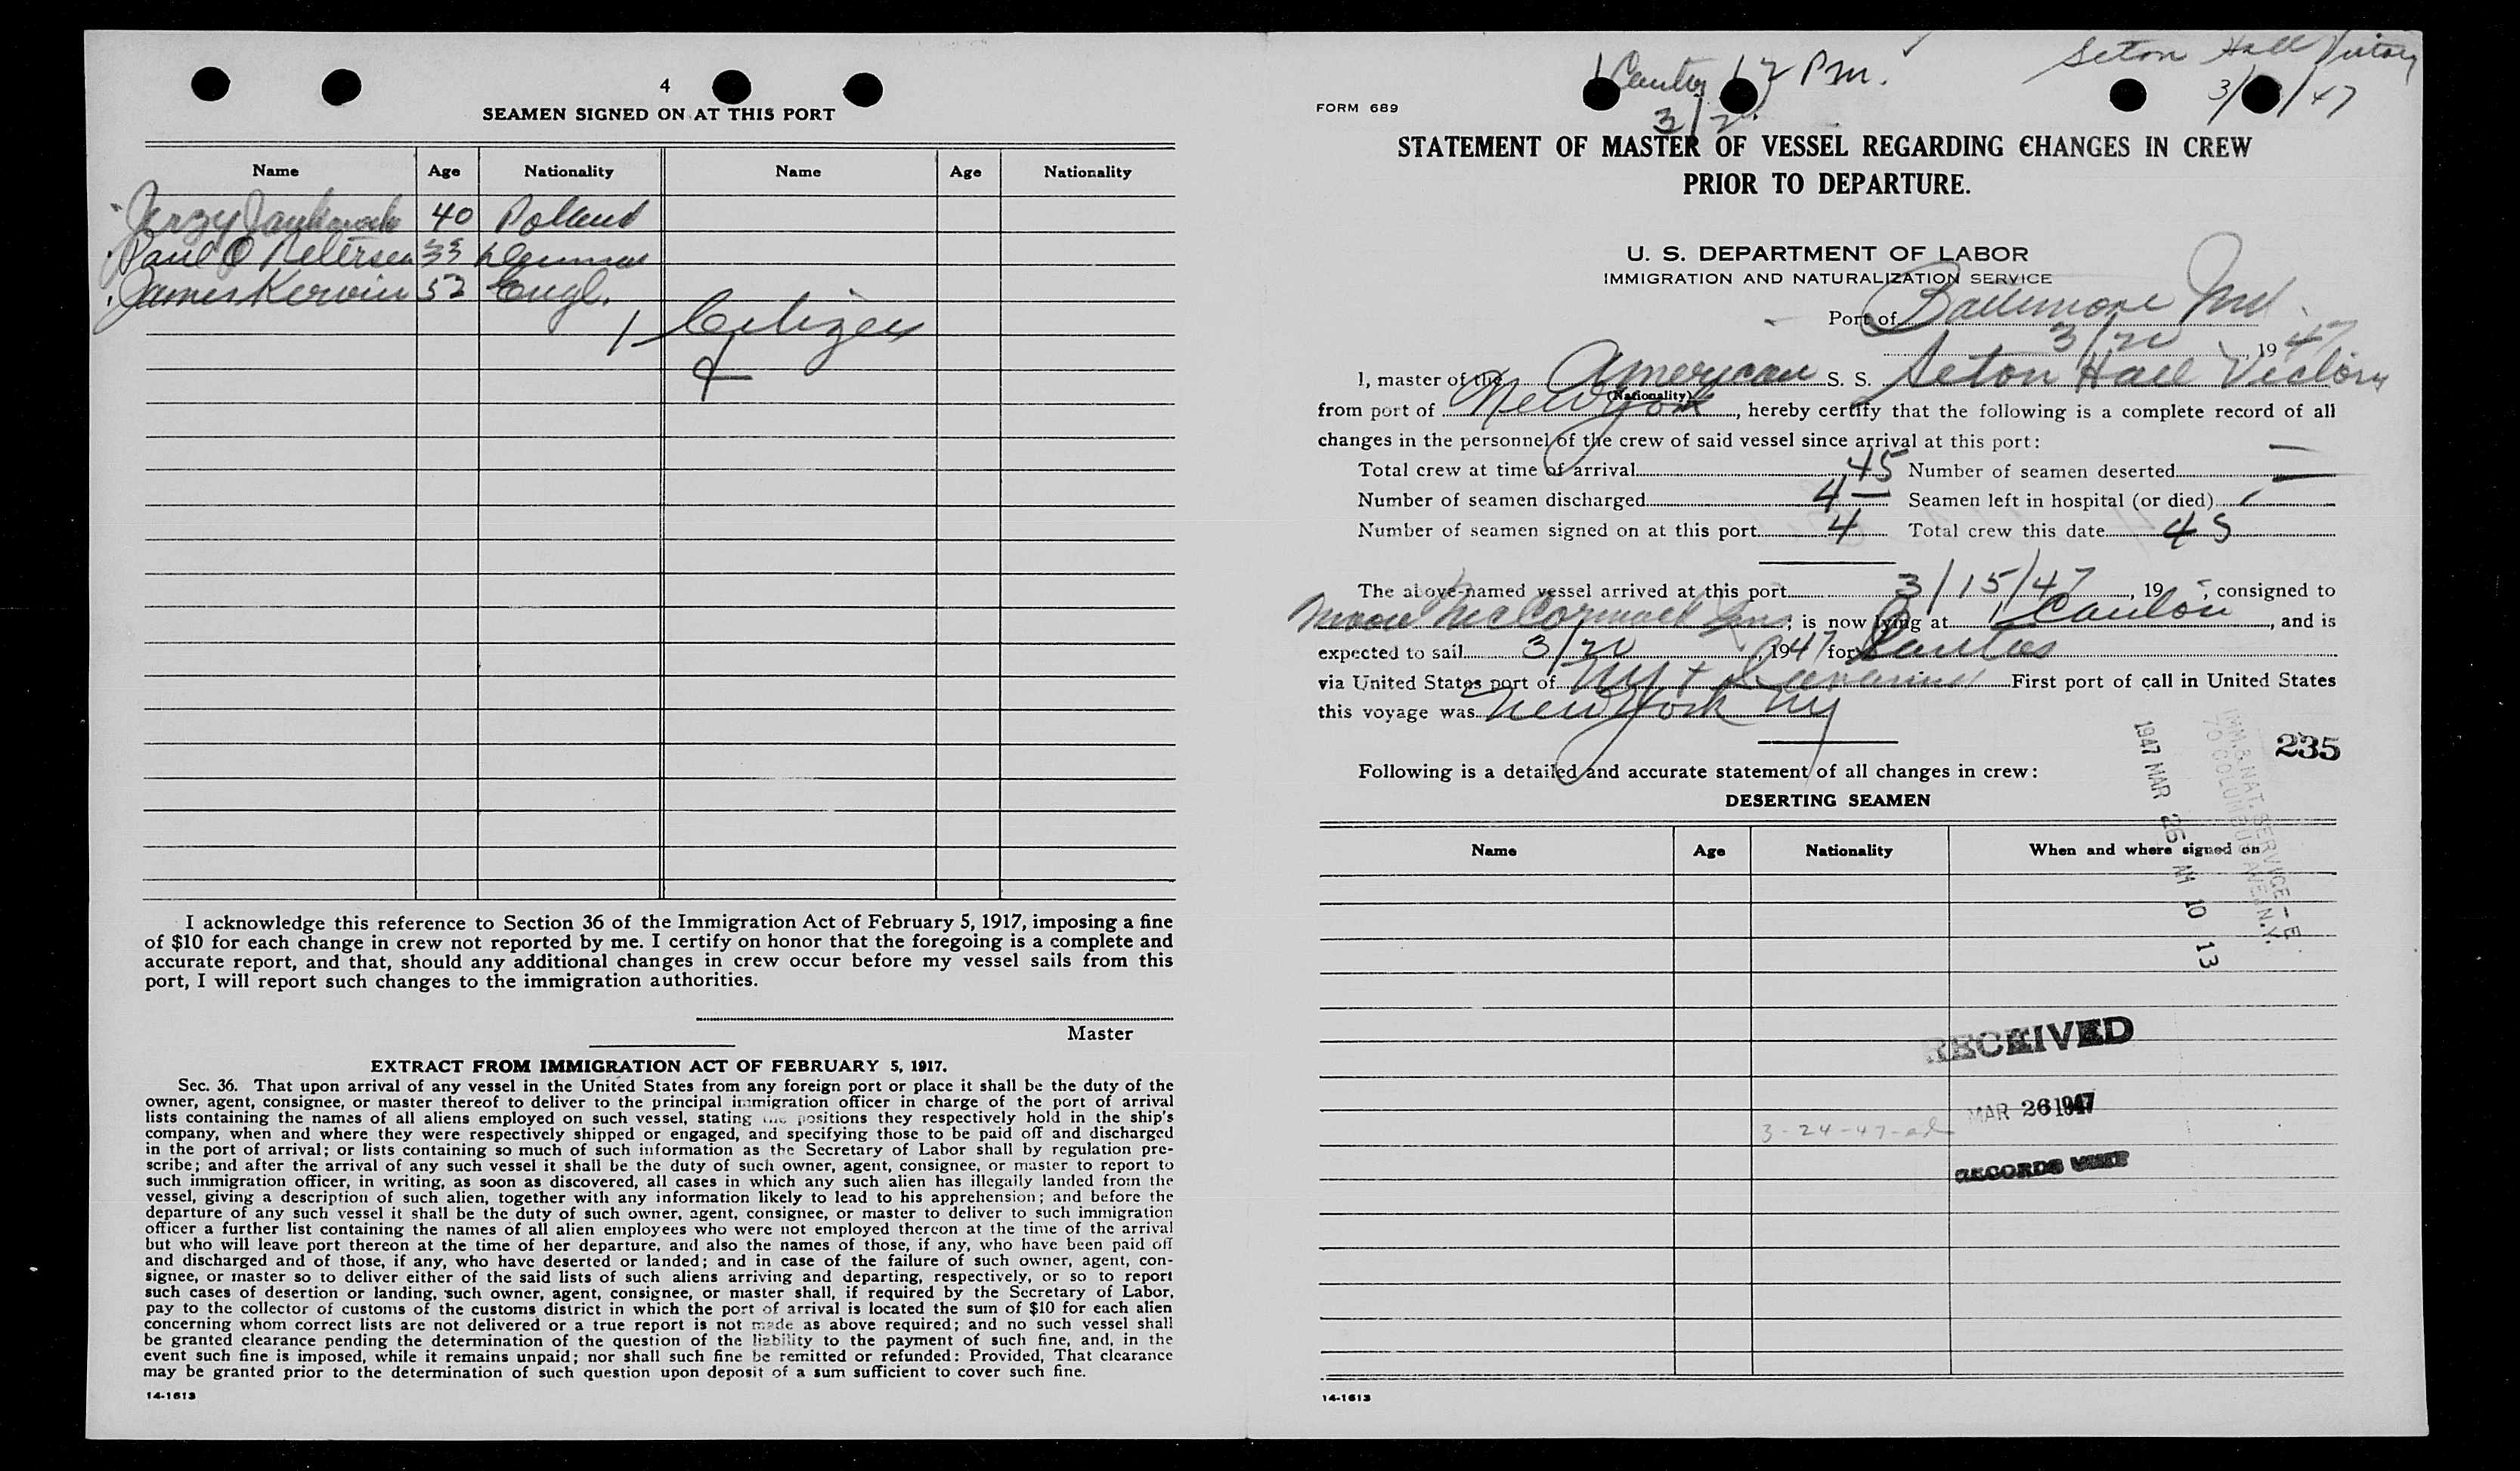 4
SEAMEN SIGNED ON AT THIS PORT
Name Age Nationality Name Age Nationality
Jerzy 40 Poland
Paul O Petersen 33
James Kerwin 52 Engl.
1 Citizen
4
I acknowledge this reference to Section 36 of the Immigration Act of February 5, 1917, imposing a fine
of $10 for each change in crew not reported by me. I certify on honor that the foregoing is a complete and
accurate report, and that, should any additional changes in crew occur before my vessel sails from this
port, I will report such changes to the immigration authorities.
Master
EXTRACT FROM IMMIGRATION ACT OF FEBRUARY 5, 1917.
Sec. 36. That upon arrival of any vessel in the United States from any foreign port or place it shall be the duty of the
owner, agent, consignee, or master thereof to deliver to the principal immigration officer in charge of the port of arrival
lists containing the names of all aliens employed on such vessel, stating the positions they respectively hold in the ship's
company, when and where they were respectively shipped or engaged, and specifying those to be paid off and discharged
in the port of arrival; or lists containing so much of such information as the Secretary of Labor shall by regulation pre-
scribe; and after the arrival of any such vessel it shall be the duty of such owner, agent, consignee, or master to report to
such immigration officer, in writing, as soon as discovered, all cases in which any such alien has illegally landed from the
vessel, giving a description of such alien, together with any information likely to lead to his apprehension; and before the
departure of any such vessel it shall be the duty of such owner, agent, consignee, or master to deliver to such immigration
officer a further list containing the names of all alien employees who were not employed thereon at the time of the arrival
but who will leave port thereon at the time of her departure, and also the names of those, if any, who have been paid off
and discharged and of those, if any, who have deserted or landed; and in case of the failure of such owner, agent, con-
signee, or master so to deliver either of the said lists of such aliens arriving and departing, respectively, or so to report
such cases of desertion or landing, such owner, agent, consignee, or master shall, if required by the Secretary of Labor,
pay to the collector of customs of the customs district in which the port of arrival is located the sum of $10 for each alien
concerning whom correct lists are not delivered or a true report is not made as above required; and no such vessel shall
be granted clearance pending the determination of the question of the liability to the payment of such fine, and, in the
event such fine is imposed, while it remains unpaid; nor shall such fine be remitted or refunded: Provided, That clearance
may be granted prior to the determination of such question upon deposit of a sum sufficient to cover such fine.
14-1613
Seton Hall Victory
2 P.M.
3/ /47
FORM 689
STATEMENT OF MASTER OF VESSEL REGARDING CHANGES IN CREW
PRIOR TO DEPARTURE.
U. S. DEPARTMENT OF LABOR
IMMIGRATION AND NATURALIZATION SERVICE
Port of Baltimore Md.
3/20, 19 47
I, master of the American S. S. Seton Hall Victory
(Nationality)
from port of New York, hereby certify that the following is a complete record of all
changes in the personnel of the crew of said vessel since arrival at this port:
Total crew at time of arrival 45 Number of seamen deserted —
Number of seamen discharged 4 — Seamen left in hospital (or died) —
Number of seamen signed on at this port 4 Total crew this date 45
The above-named vessel arrived at this port 3/15/47, 19 , consigned to
Moore McCormack; is now lying at Canton, and is
expected to sail 3/20, 1947 for Santos
via United States port of NY + First port of call in United States
this voyage was New York NY
235
Following is a detailed and accurate statement of all changes in crew:
DESERTING SEAMEN
Name Age Nationality When and where signed on
IMM. & NAT. SERVICE - E
70 COLUMBUS AVE. N.Y.
1947 MAR 26 AM 10 13
RECEIVED
MAR 26 1947
3-24-47-
RECORDS UNIT
14-1613